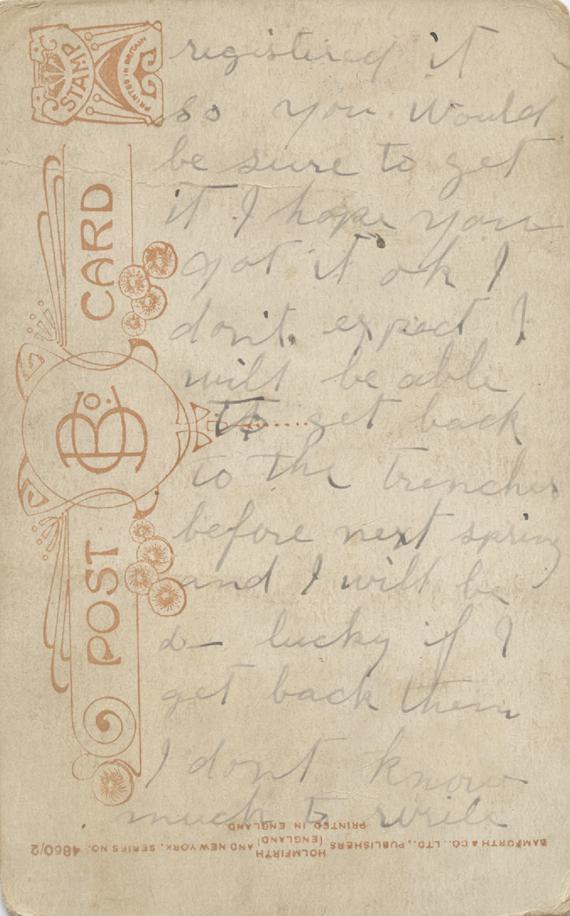 registered it
so you would
be sure to get
it I hope you
got it ok I
dont expect I
will be able
to get back
to the trenches
before next spring
and I will be
d— lucky if I
get back then
I dont know
much to write
STAMP
PRINTED IN BRITAIN
POST CARD
BCo.
BAMFORTH & CO., LTD., PUBLISHERS (ENGLAND) AND NEW YORK. SERIES NO. 4860/2
HOLMFIRTH
PRINTED IN ENGLAND